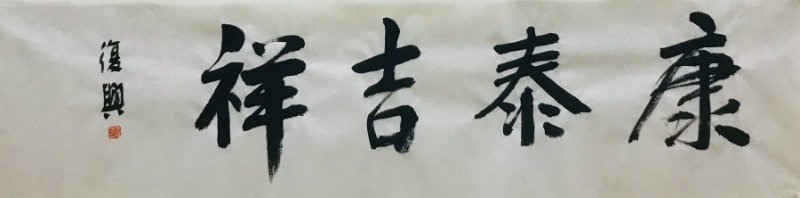 康泰吉祥
復興